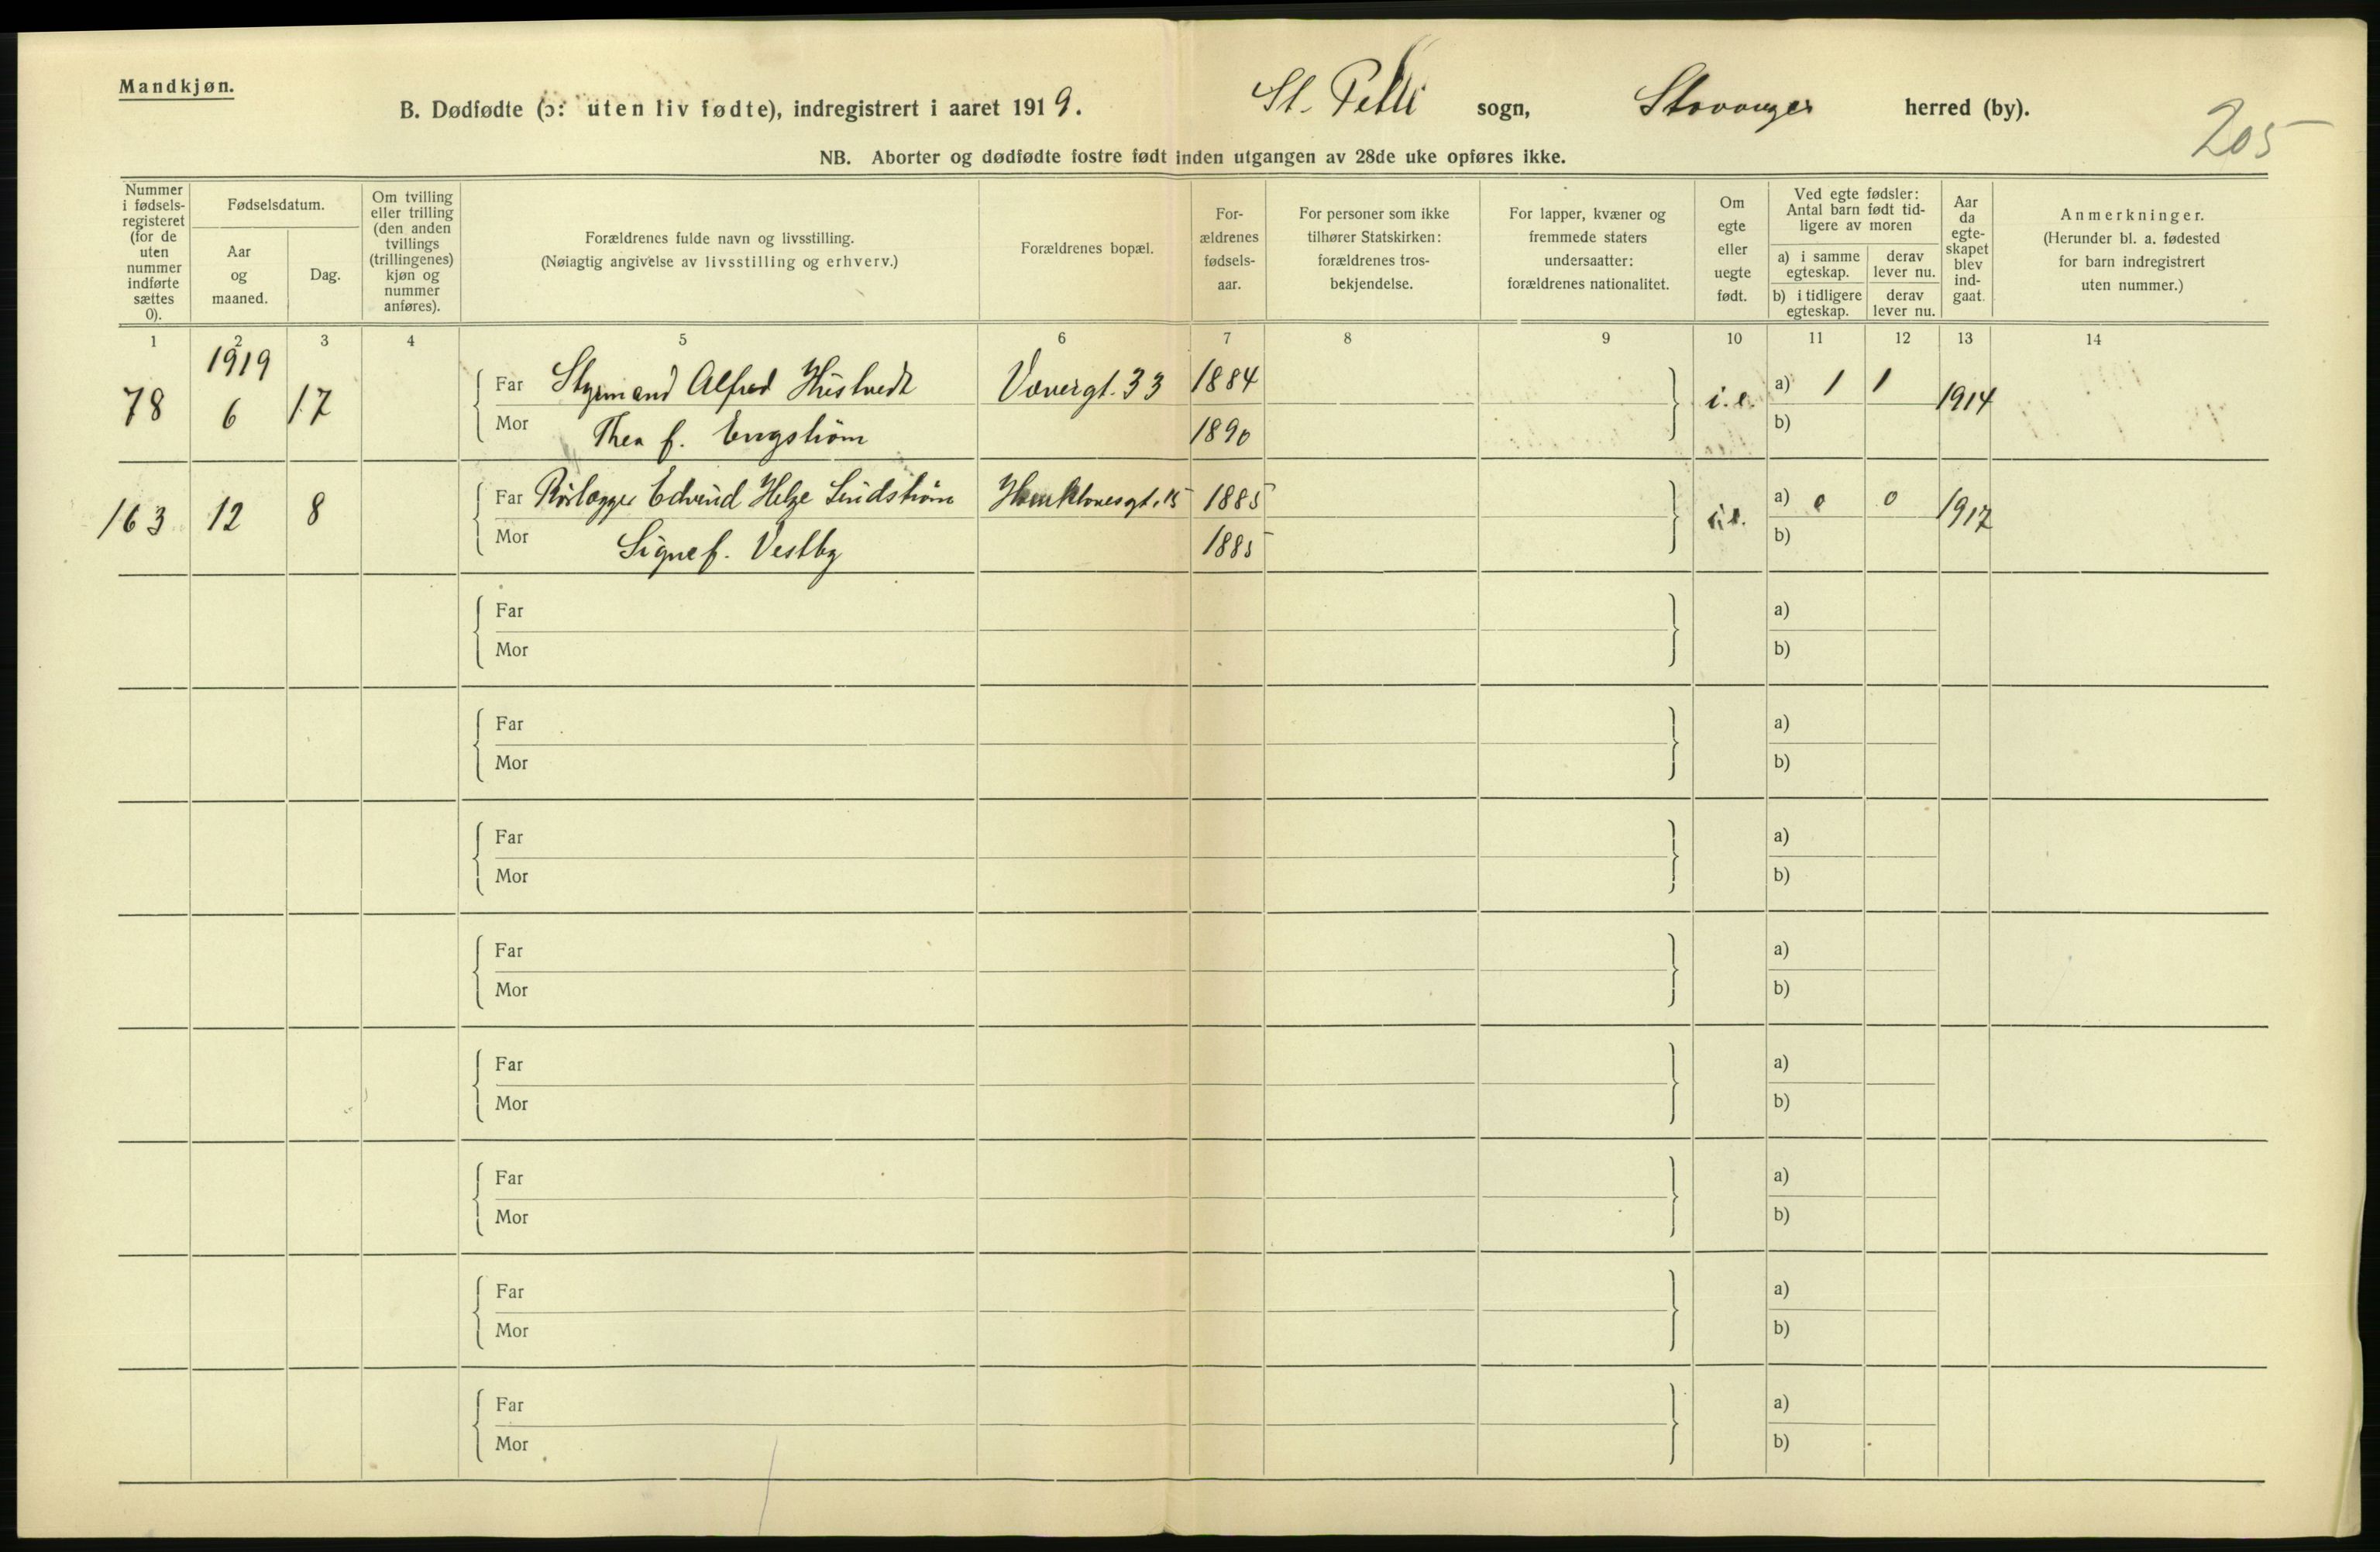 Mandkjøn.
B. Dødfødte (ɔ: uten liv fødte), indregistrert i aaret 1919. St. Petri sogn, Stavanger herred (by).
205
NB. Aborter og dødfødte fostre født inden utgangen av 28de uke opføres ikke.
Nummer i fødsels-registeret (for de uten nummer indførte sættes 0).
Fødselsdatum.
Aar og maaned.
Dag.
Om tvilling eller trilling (den anden tvillings (trillingenes) kjøn og nummer anføres).
Forældrenes fulde navn og livsstilling.
(Nøiagtig angivelse av livsstilling og erhverv.)
Forældrenes bopæl.
For-ældrenes fødsels-aar.
For personer som ikke tilhører Statskirken: forældrenes tros-bekjendelse.
For lapper, kvæner og fremmede staters undersaatter: forældrenes nationalitet.
Om egte eller uegte født.
Ved egte fødsler: Antal barn født tid-ligere av moren
a) i samme egteskap.
derav lever nu.
b) i tidligere egteskap.
derav lever nu.
Aar da egte-skapet blev ind-gaat.
Anmerkninger.
(Herunder bl. a. fødested for barn indregistrert uten nummer.)
1 2 3 4 5 6 7 8 9 10 11 12 13 14
1919
78 6 17 Far Styrmand Alfred Hustvedt Vævergt. 33 1884 i.e. a) 1 1 1914
Mor Thea f. Engstrøm 1890 b)
163 12 8 Far Rørlægger Edvind Helge Lindstrøm 15 1885 i.e. a) 0 0 1917
Mor Signe f. Vestby 1885 b)
Far a)
Mor b)
Far a)
Mor b)
Far a)
Mor b)
Far a)
Mor b)
Far a)
Mor b)
Far a)
Mor b)
Far a)
Mor b)
Far a)
Mor b)